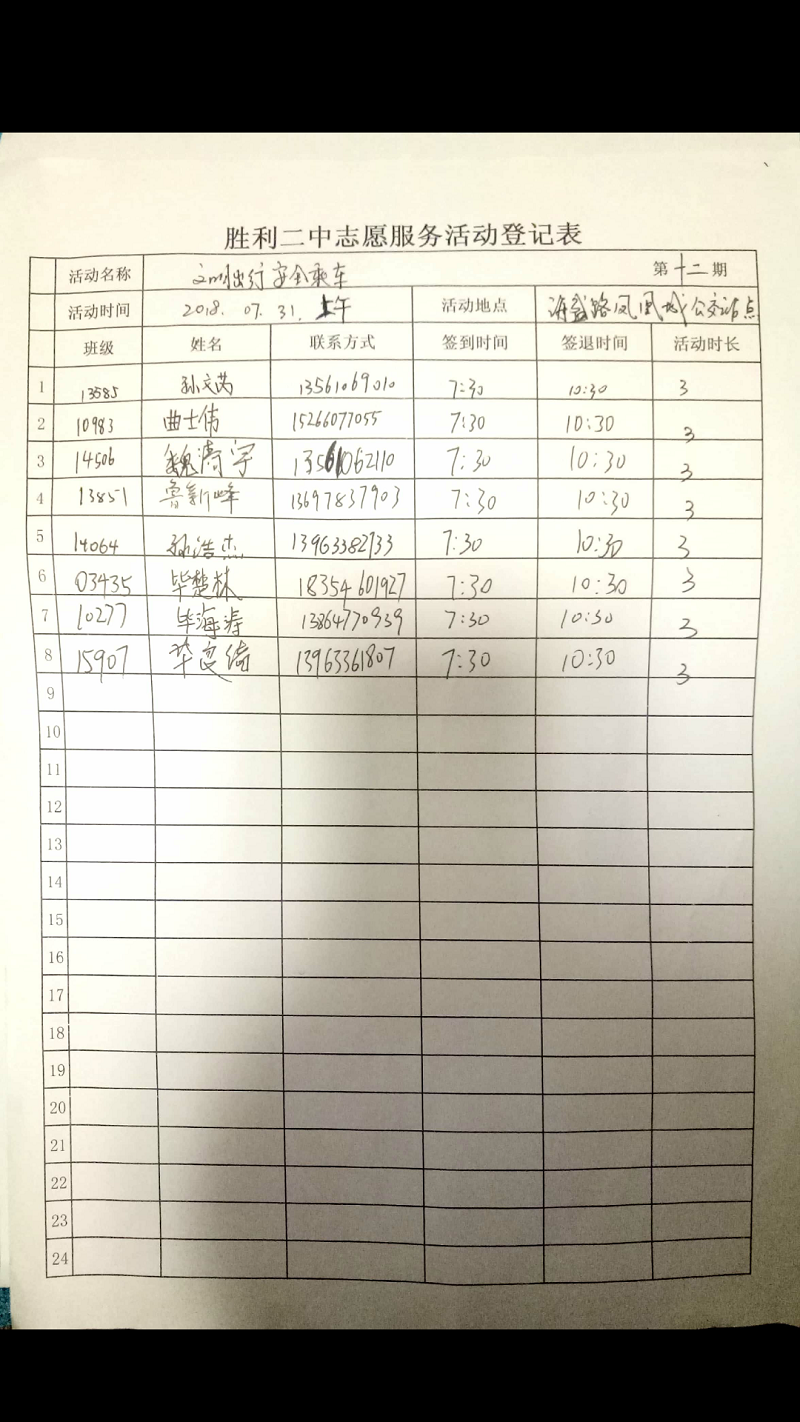 胜利二中志愿服务活动登记表
活动名称 文明出行安全乘车 第十二期
活动时间 2018. 07. 31. 上午 活动地点 路凤凰城公交站点
班级 姓名 联系方式 签到时间 签退时间 活动时长
1 13585 孙文芮 13561069010 7:30 10:30 3
2 10983 曲士伟 15266077055 7:30 10:30 3
3 14506 魏 宇 13561062110 7:30 10:30 3
4 13851 鲁新峰 13697837903 7:30 10:30 3
5 14064 孙浩杰 13963382733 7:30 10:30 3
6 03435 毕楚林 18354601927 7:30 10:30 3
7 10277 毕海涛 13864770939 7:30 10:30 3
8 15907 13963361807 7:30 10:30 3
9
10
11
12
13
14
15
16
17
18
19
20
21
22
23
24